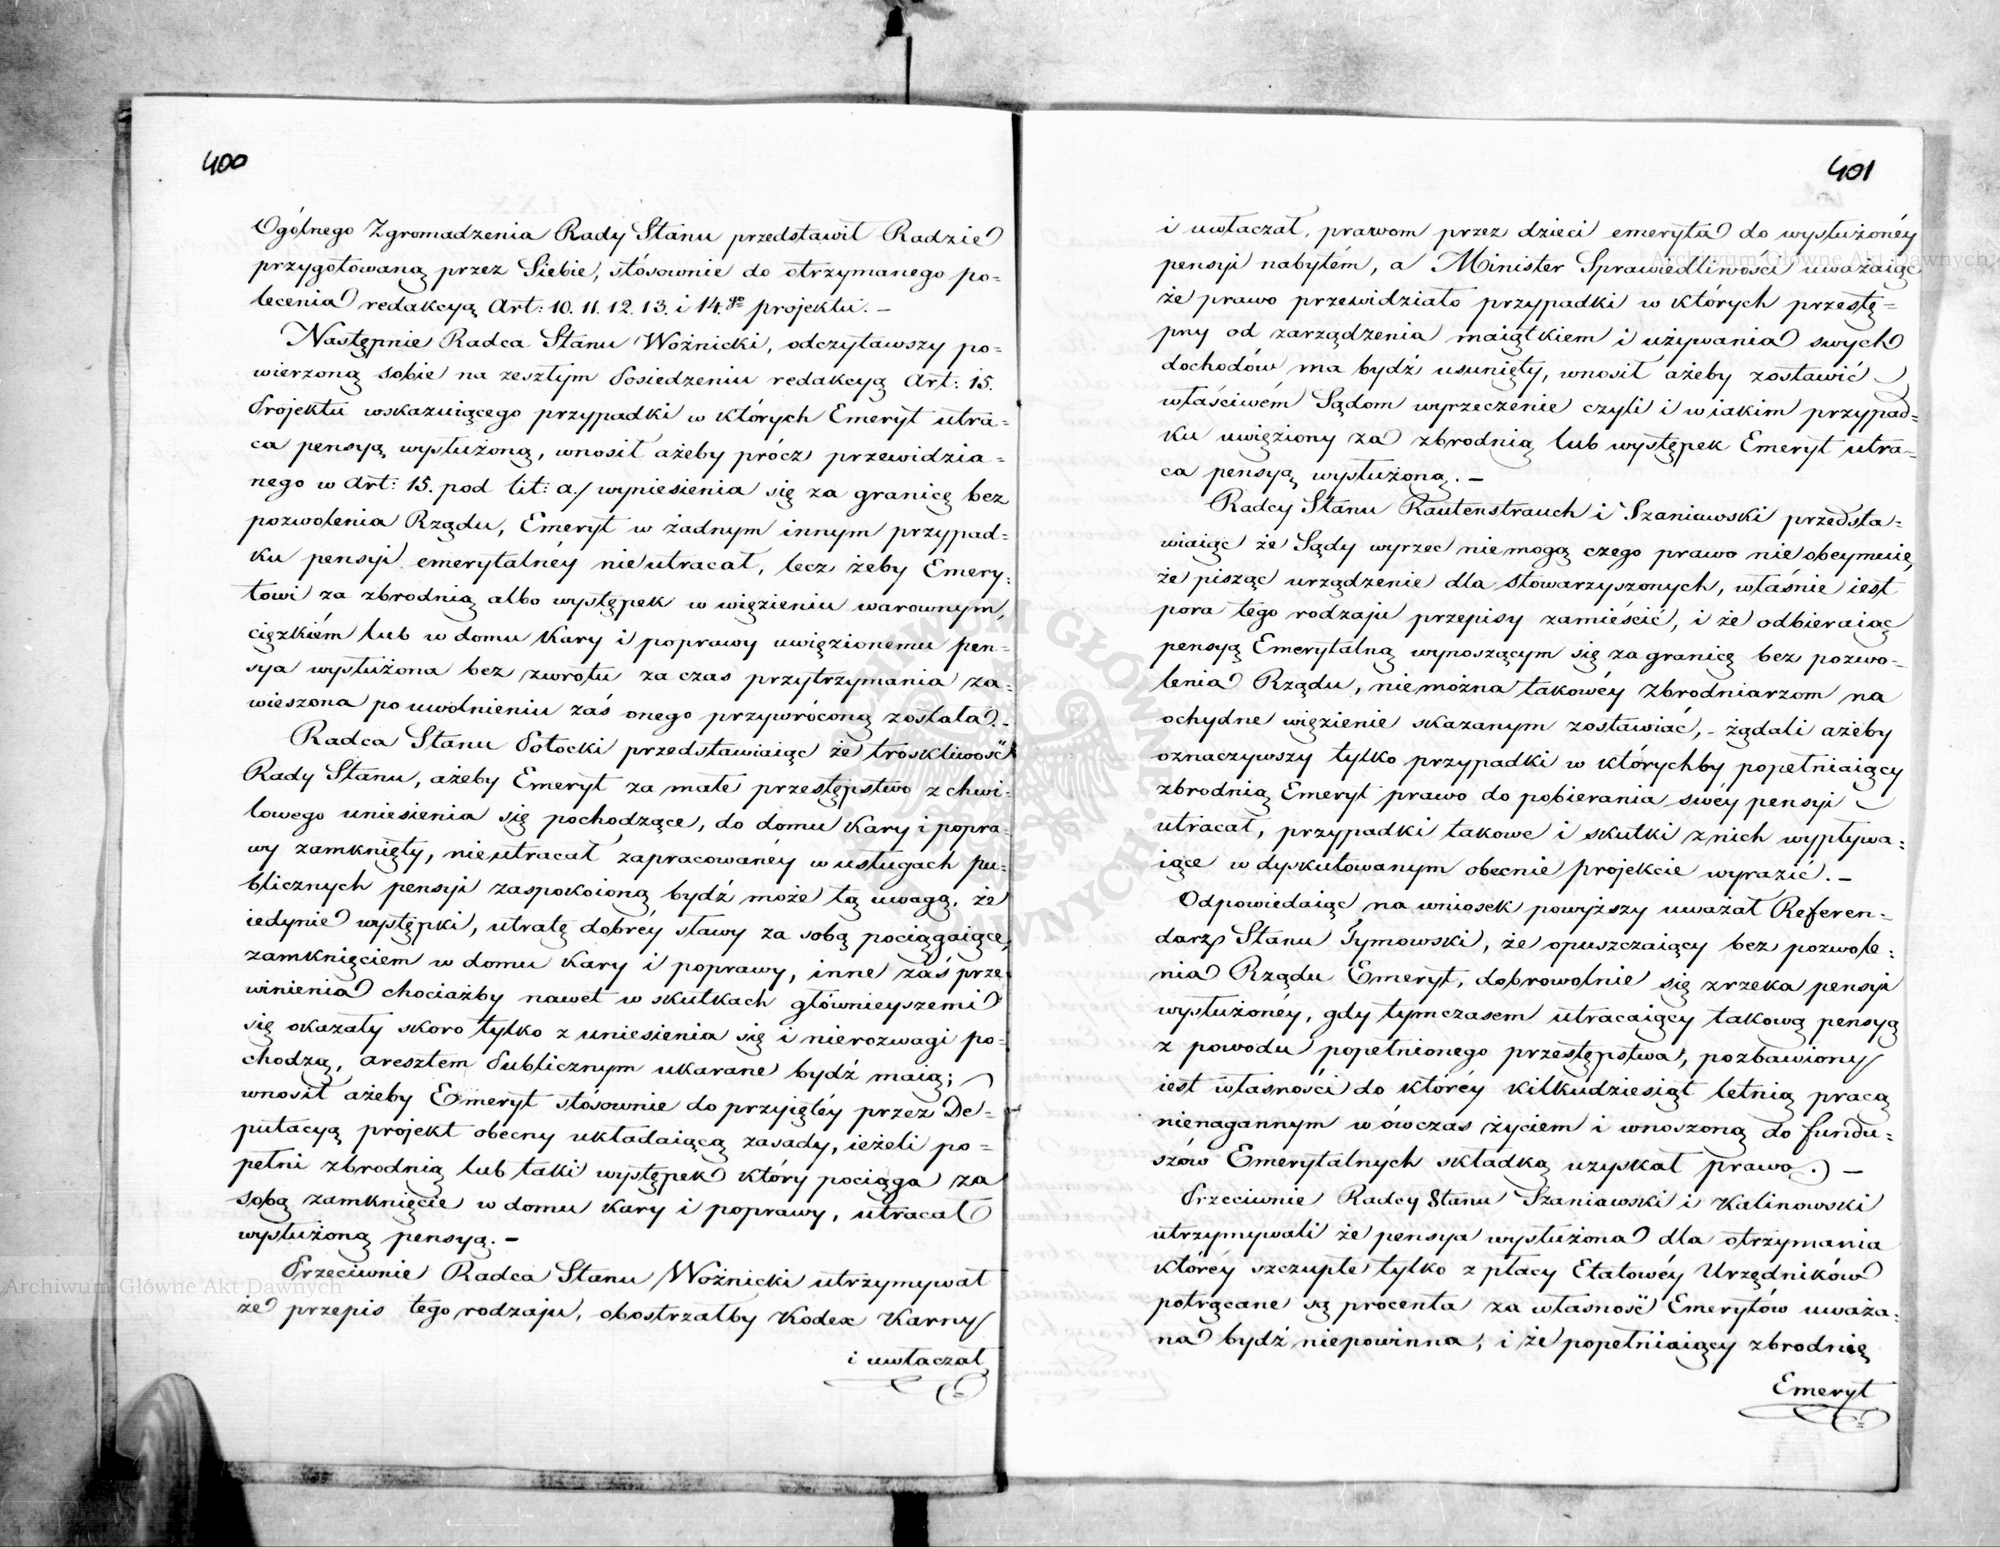 400
Ogólnego Zgromadzenia Rady Stanu przedstawił Radzie
przygotowaną przez Siebie, stósownie do otrzymanego po-
lecenia redakcyą Art: 10. 11. 12. 13. i 14.go projektu. –
Następnie Radca Stanu Woźnicki, odczytawszy po-
wierzoną sobie na zeszłym Posiedzeniu redakcyą Art: 15.
Projektu wskazuiącego przypadki w których Emeryt utra-
ca pensyą wysłużoną, wnosił ażeby prócz przewidzia-
nego w Art: 15. pod lit: a./ wyniesienia się za granicę bez
pozwolenia Rządu, Emeryt w żadnym innym przypad-
ku pensyi emerytalnéy nieutracał, lecz żeby Emery-
towi za zbrodnią albo występek w więzieniu warownym,
ciężkiém lub w domu Kary i poprawy uwięzionemu pen-
sya wysłużona bez zwrotu za czas przytrzymania za-
wieszona po uwolnieniu zaś onego przywróconą została. –
Radca Stanu Potocki przedstawiaiąc że troskliwość
Rady Stanu, ażeby Emeryt za małe przestępstwo z chwi-
lowego uniesienia się pochodzące, do domu Kary i popra-
wy zamknięty, nieutracał zapracowanéy w usługach pu-
blicznych pensyi zaspokoioną bydź może tą uwagą, że
iedynie występki, utratę dobréy sławy za sobą pociągaiące,
zamknięciem w domu Kary i poprawy, inne zaś prze-
winienia chociażby nawet w skutkach główniejszemi
się okazały skoro tylko z uniesienia się i nierozwagi po-
chodzą, aresztem Publicznym ukarane bydź maią;
wnosił ażeby Emeryt stósownie do przyiętéy przez De-
putacyą projekt obecny układaiącą zasady, ieżeli po-
pełni zbrodnią lub taki występek który pociąga za
sobą zamknięcie w domu Kary i poprawy, utracał
wysłużoną pensyą. –
Przeciwnie Radca Stanu Woźnicki utrzymywał
że przepis tego rodzaju, obostrzałby Kodex Karny
i uwłaczał
401
i uwłaczał, prawom przez dzieci emeryta do wysłużonéy
pensyi nabytém, a Minister Sprawiedliwości uważaiąc
że prawo przewidziało przypadki w których przestę-
pny od zarządzenia maiątkiem i używania swych
dochodów ma bydź usunięty, wnosił ażeby zostawić
właściwém Sądom wyrzeczenie czyli i w iakim przypad-
ku uwięziony za zbrodnią lub występek Emeryt utra-
ca pensyą wysłużoną. –
Radcy Stanu Rautenstrauch i Szaniawski przedsta-
wiaiąc że Sądy wyrzec niemogą czego prawo nieobeymuie,
że pisząc urządzenie dla stowarzyszonych, właśnie iest
pora tego rodzaju przepisy zamieścić, i że odbieraiąc
pensyą Emerytalną wynoszącym się za granicę bez pozwo-
lenia Rządu, niemożna takowéy zbrodniarzom na
ochydne więzienie skazanym zostawiać, – żądali ażeby
oznaczywszy tylko przypadki w którychby popełniaiący
zbrodnią Emeryt prawo do pobierania swéy pensyi
utracał, przypadki takowe i skutki z nich wypływa-
iące w dyskutowanym obecnie projekcie wyrazić. –
Odpowiedaiąc na wniosek powyższy uważał Referen-
darz Stanu Tymowski, że opuszczaiący bez pozwole-
nia Rządu Emeryt, dobrowolnie się zrzeka pensyi
wysłużonéy, gdy tymczasem utracaiący takową pensyą
z powodu popełnionego przestępstwa, pozbawiony
iest własności do któréy kilkudziesiąt letnią pracą
nienagannym wówczas życiem i wnoszoną do fundu-
szów Emerytalnych składką uzyskał prawo. –
Przeciwnie Radcy Stanu Szaniawski i Kalinowski
utrzymywali że pensya wysłużona dla otrzymania
któréy szczupłe tylko z płacy Etatowéy Urzędników
potrącane są procenta za własność Emerytów uważa-
na bydź niepowinna, i że popełniaiący zbrodnię
Emeryt
Archiwum Główne Akt Dawnych
Archiwum Główne Akt Dawnych